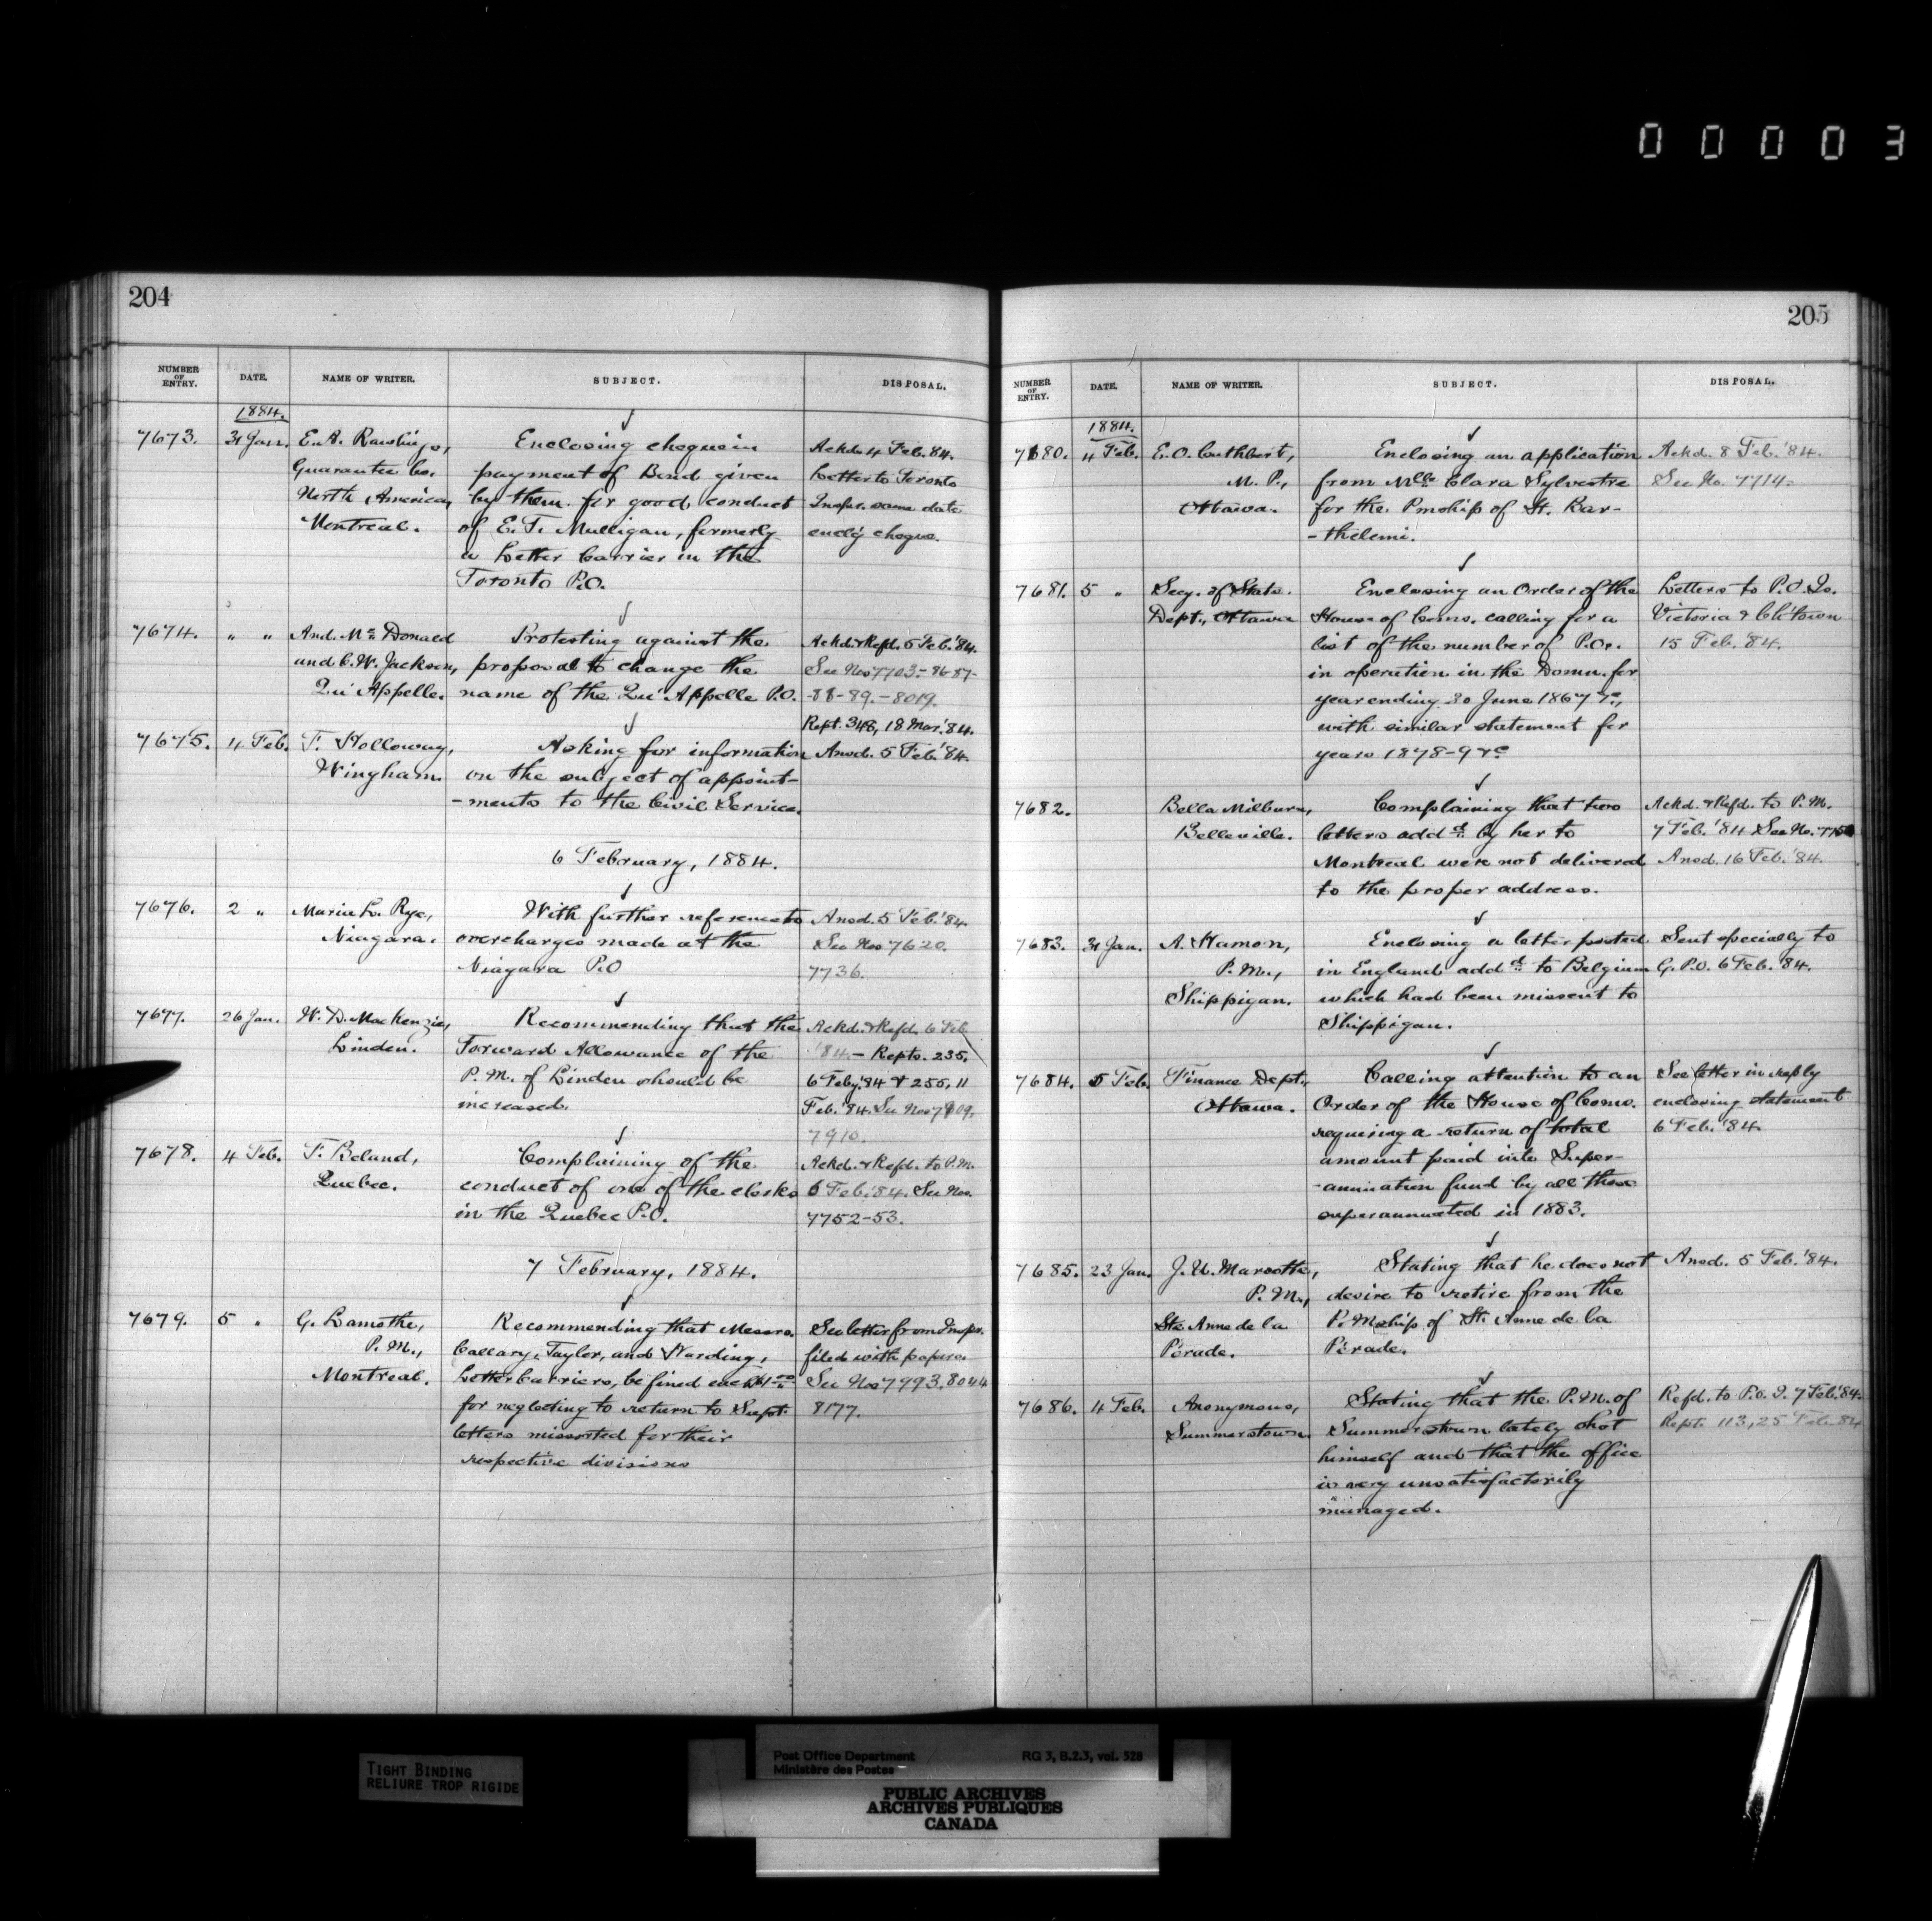 00003
204
NUMBER OF ENTRY. DATE. NAME OF WRITER. SUBJECT. DISPOSAL.
1884.
7673. 31 Jan. E. A. Rawlings, Enclosing cheque in Ackd. 4 Feb. 84.
Guarantee Co. payment of Bond given Letter to Toronto
North America, by them for good conduct Inspr. same date
Montreal. of E. T. Mulligan, formerly enclg cheque.
a Letter Carrier in the
Toronto P.O.
7674. " " And. McDonald Protesting against the Ackd. & Refd. 5 Feb. '84.
and C. W. Jackson, proposal to change the See Nos 7703-86-87-
Qu'Appelle. name of the Qu'Appelle P.O. -88-89.-8019.
Rept. 348, 18 Mar. '84.
7675. 4 Feb. T. Holloway, Asking for information Ansd. 5 Feb. '84.
Wingham. on the subject of appoint-
-ments to the Civil Service.
6 February, 1884.
7676. 2 " Maria L. Rye, With further reference to Ansd. 5 Feb. '84
Niagara. overcharges made at the See Nos 7620.
Niagara P.O 7736.
7677. 26 Jan. W. D. MacKenzie, Recommending that the Ackd. & Refd. 6 Feb.
Linden. Forward Allowance of the '84.- Repts. 235,
P. M. of Linden should be 6 Feby '84 & 255, 11
increased. Feb. '84. See Nos 7909.
7910.
7678. 4 Feb. F. Beland, Complaining of the Ackd. & Refd. to P.M.
Quebec. conduct of one of the clerks 6 Feb. '84. See Nos.
in the Quebec P.O. 7752-53.
7 February, 1884.
7679. 5 " G. Lamothe, Recommending that Messrs. See letter from Inspr.
P. M., Callary, Taylor, and Harding, filed with papers.
Montreal. Letter Carriers, be fined each $1.00 See Nos 7993, 8044
for neglecting to return to Supt. 8177.
letters missorted for their
respective divisions
205
NUMBER OF ENTRY. DATE. NAME OF WRITER. SUBJECT. DISPOSAL.
1884.
7680. 4 Feb. E. O. Cuthbert, Enclosing an application Ackd. 8 Feb. '84.
M. P., from Mlle Clara Sylvestre See No. 7714.
Ottawa. for the Pmship of St. Bar-
-thelemi.
7681. 5 " Secy. of State Enclosing an Order of the Letters to P.O. Is.
Dept., Ottawa House of Coms. calling for a Victoria & Ch'town
list of the number of P.Os. 15 Feb. '84.
in operation in the Domn. for
year ending 30 June 1867 &c.,
with similar statement for
years 1878-9 &c
7682. Bella Milburn, Complaining that two Ackd. & Refd. to P. M.
Belleville. letters addd. by her to 7 Feb. '84 See No.
Montreal were not delivered Ansd. 16 Feb. '84.
to the proper address.
7683. 31 Jan. A. Hamon, Enclosing a letter posted Sent specially to
P. M., in England addd. to Belgium G.P.O. 6 Feb. '84.
Shippigan. which had been missent to
Shippigan.
7684. 5 Feb. Finance Dept., Calling attention to an See letter in reply
Ottawa. Order of the House of Coms. enclosing statement
requiring a return of total 6 Feb. '84.
amount paid into Super-
-annuation fund by all those
superannuated in 1883.
7685. 23 Jan. J. U. Marcotte, Stating that he does not Ansd. 5 Feb. '84.
P. M., desire to retire from the
Ste. Anne de la P. Mship. of Ste Anne de la
Pérade. Pérade.
7686. 4 Feb. Anonymous, Stating that the P. M. of Refd. to P.O. I. 7 Feb. '84.
Summerstown. Summerstown lately shot Rept. 113, 25 Feb. 84
himself and that the office
is very unsatisfactorily
managed.
TIGHT BINDING
RELIURE TROP RIGIDE
Post Office Department RG 3, B.2.3, vol. 528
Ministère des Postes
PUBLIC ARCHIVES
ARCHIVES PUBLIQUES
CANADA